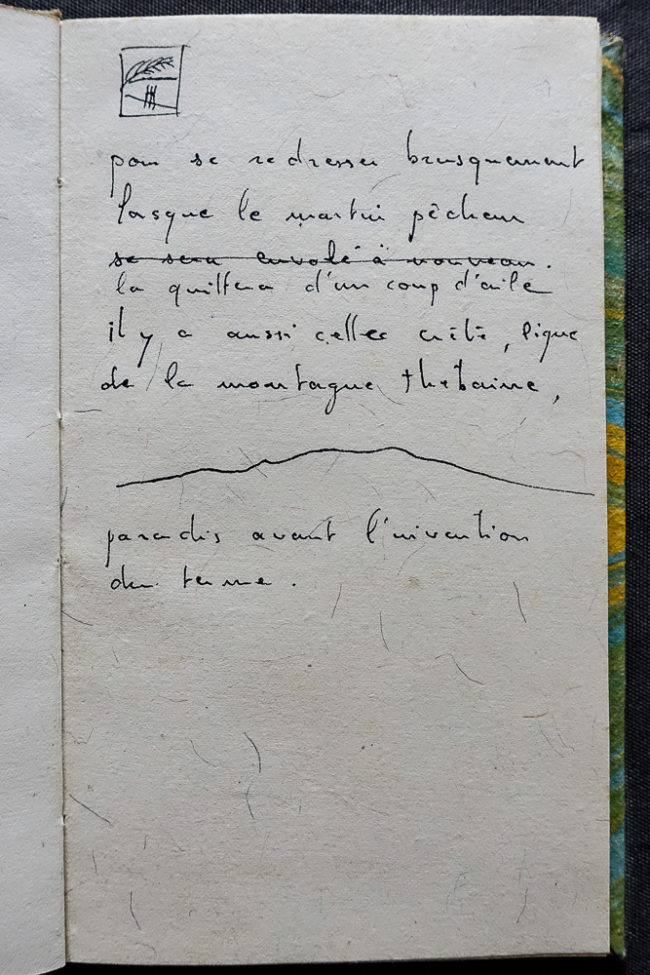 pour se redresser brusquement
lorsque le martin pêcheur
se sera envolé à nouveau.
la quittera d'un coup d'aile
il y a aussi cette crête, ligne
de la montagne thébaine,
paradis avant l'invention
du terme.